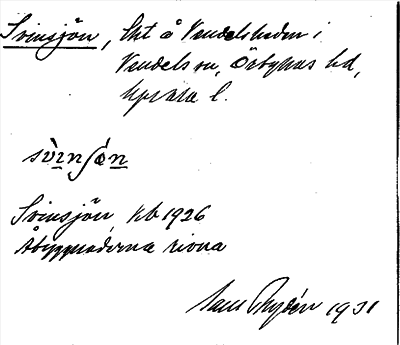 Svinsjön, Sht å Vendelsheden i
Vendels sn, Örbyhus hd,
Uppsala l.
svìnʃón
Svinsjön kb 1926
Åbyggnaderna rivna
Rydén 1931